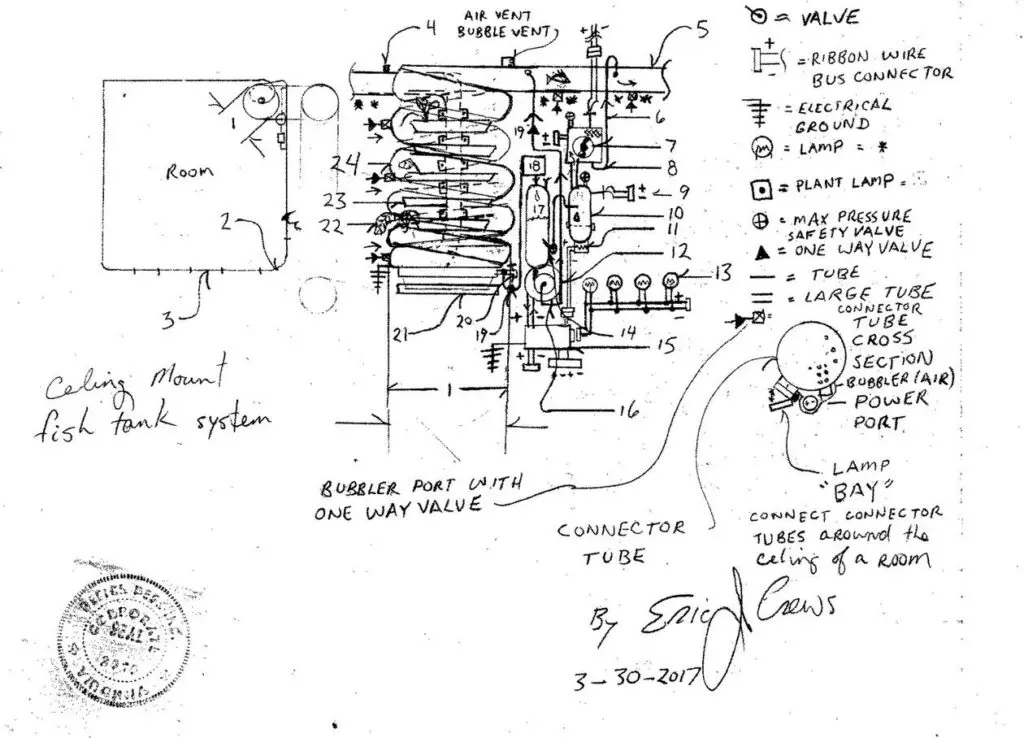 AIR VENT
BUBBLE VENT
4
5
= VALVE
= RIBBON WIRE
BUS CONNECTOR
= ELECTRICAL
GROUND
= LAMP = *
= PLANT LAMP =
= MAX PRESSURE
SAFETY VALVE
= ONE WAY VALVE
= TUBE
= LARGE TUBE
CONNECTOR
TUBE
CROSS
SECTION
BUBBLER (AIR)
POWER
PORT
LAMP
"BAY"
CONNECT CONNECTOR
TUBES around the
celing of a room
1
Room
2
3
6
7
8
9
10
11
12
13
14
15
16
17
18
19
19
20
21
22
23
24
1
Celing Mount
fish tank system
BUBBLER PORT WITH
ONE WAY VALVE
CONNECTOR
TUBE
By Eric J Crews
3-30-2017
SEAL